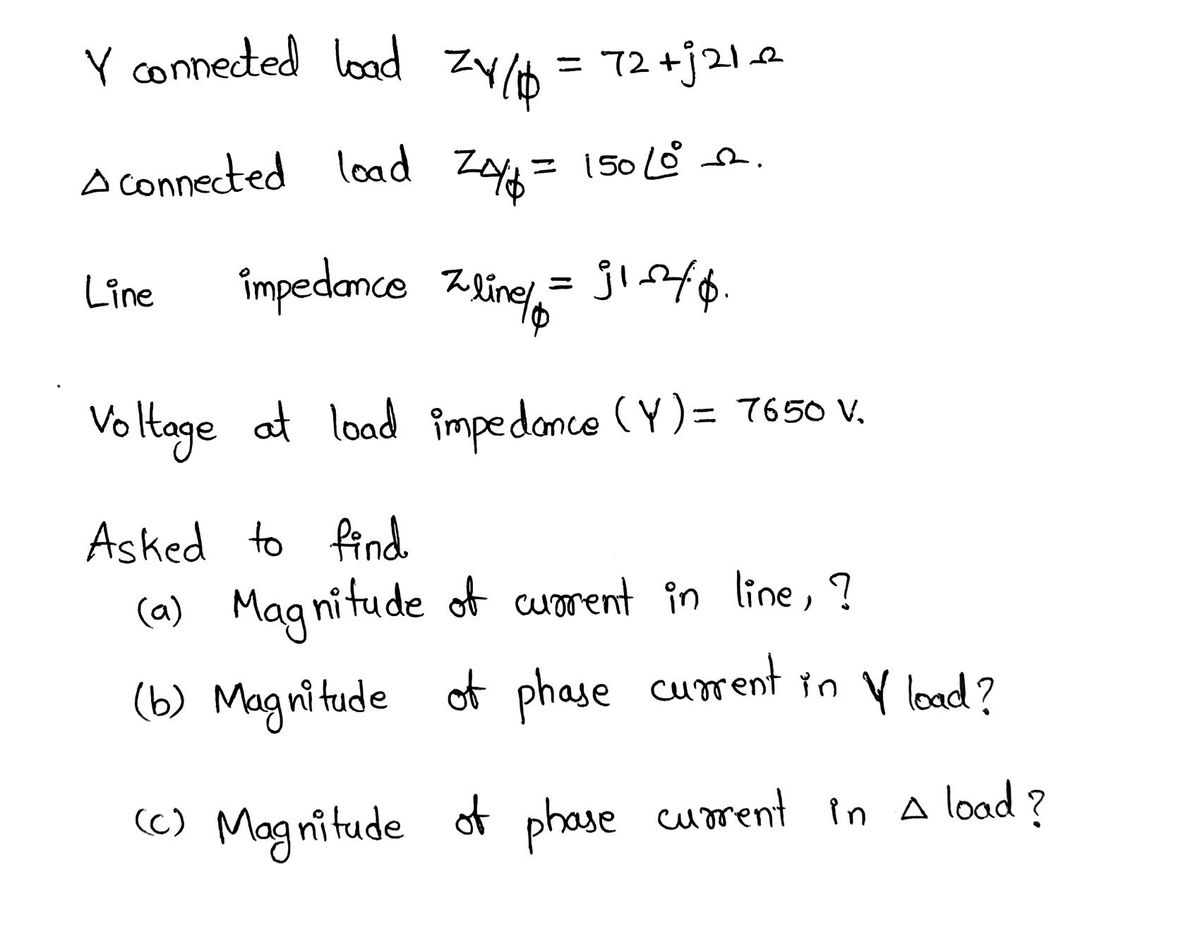 Y connected load ZY/ϕ = 72+j21Ω
Δ connected load ZΔ/ϕ = 150∠0° Ω.
Line impedance Zline/ϕ = j1Ω/ϕ.
Voltage at load impedance (Y) = 7650 V.
Asked to find
(a) Magnitude of current in line, ?
(b) Magnitude of phase current in Y load?
(c) Magnitude of phase current in Δ load?